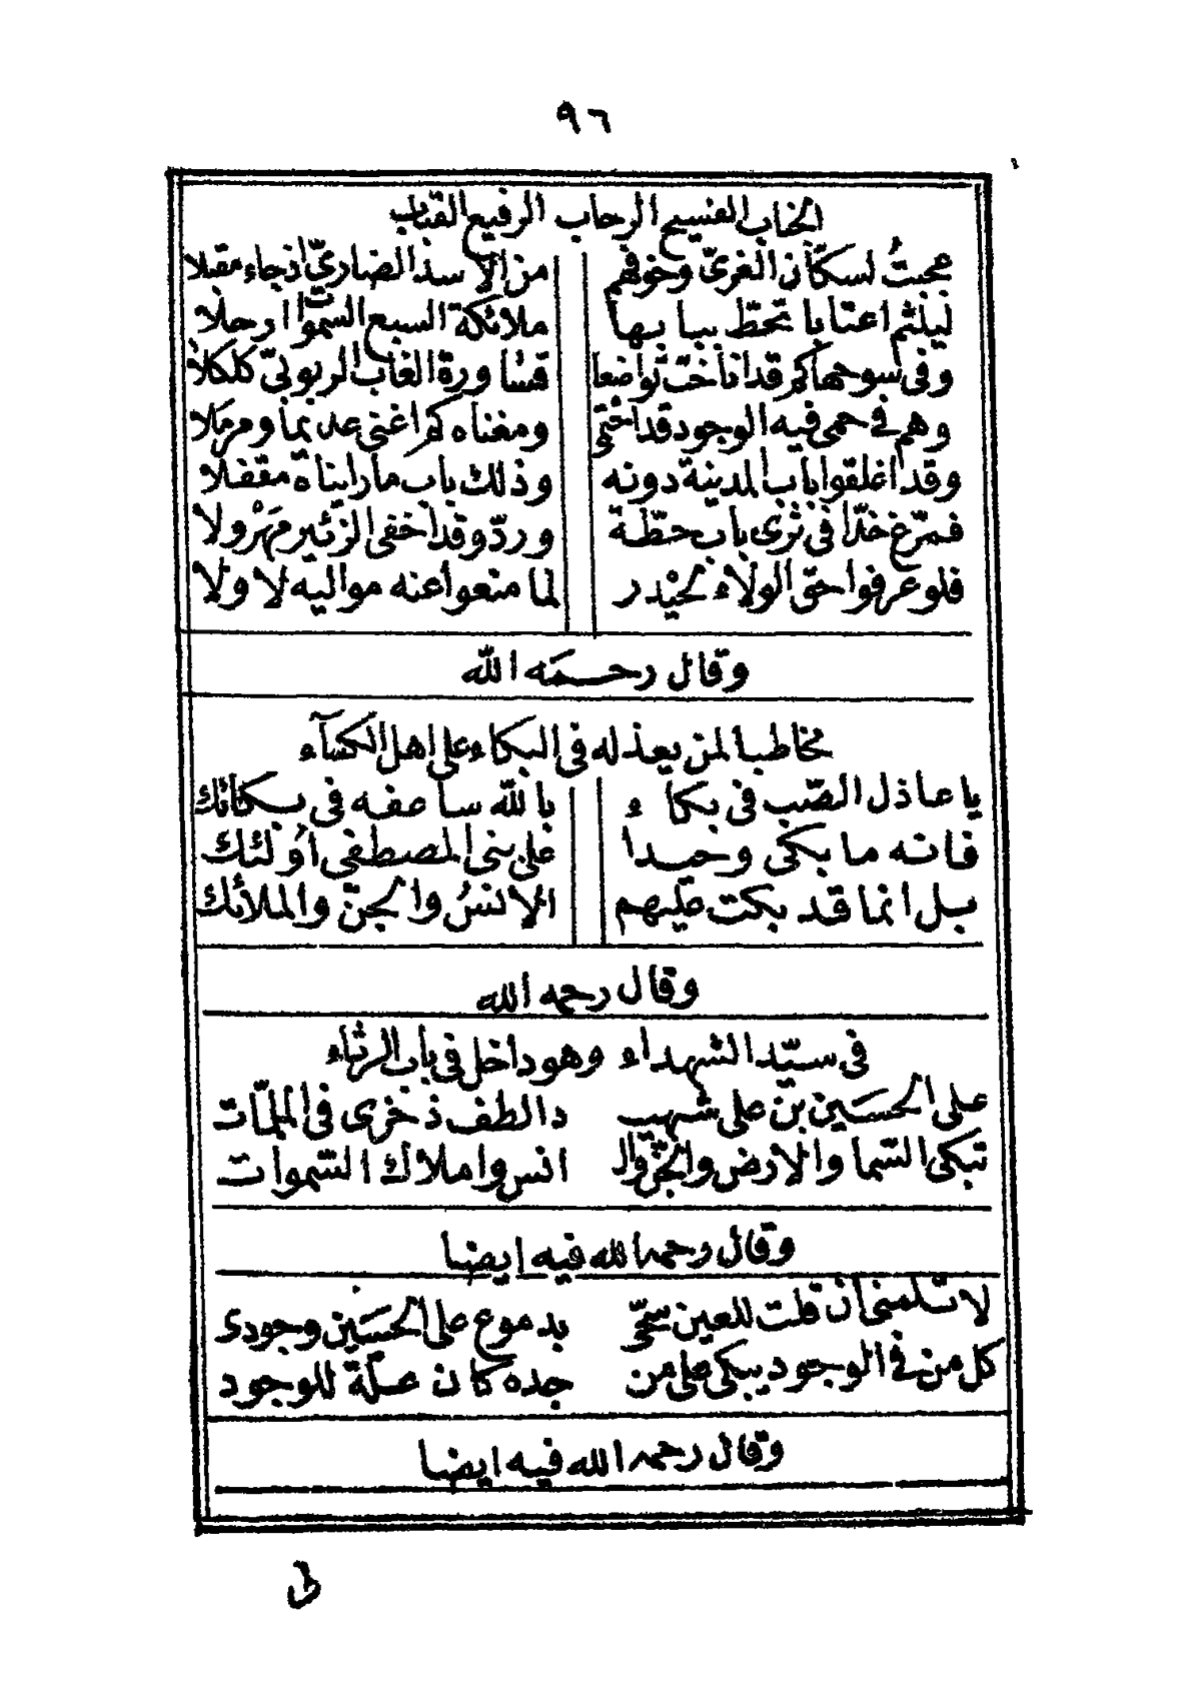 ٩٦
الجناب الفسيح الرحاب الرفيع القباب
عجبتُ لسكّان الغريّ وخوفهم من الاسد الضاريّ اذ جاء مقبلا
ليلثم اعتابا تحطّ ببابها ملائكة السبع السّموات ارحلا
وفى سوحها كم قد اناخت تواضعا قساورة الغاب الربوبيّ كلكلا
وهم في حمى فيه الوجود قد احتمى ومغناه كم اغنى عديما ومرملا
وقد اغلقوا باب المدينة دونه وذلك باب ما رايناه مقفلا
فمرّغ خدّا في ثرى باب حطّة وردّ وقد اخفى الزئير مهَرْولا
فلو عرفوا حق الولاء لحيْدر لما منعوا عنه مواليه لا ولا
وقال رحمه الله
مخاطبا لمن يعذله فى البكاء على اهل الكسآء
يا عاذل الصّب فى بكاء بالله ساعفه فى بكائك
فانه ما بكى وحيدا على بنى المصطفى اُولئك
بل انما قد بكت عليهم الانسُ والجنّ والملائك
وقال رحمه الله
فى سيّد الشهداء وهو داخل فى باب الرثاء
على الحسَين بن على شهيد الطف ذخرى فى الملمّات
تبكى السّما والارض والجنّ والانس واملاك السّموات
وقال رحمه الله فيه ايضا
لا تلمنى ان قلت للعين سحّى بدموع على الحسَين وجودى
كل من في الوجود يبكى على من جده كان علّة للوجود
وقال رحمه الله فيه ايضا